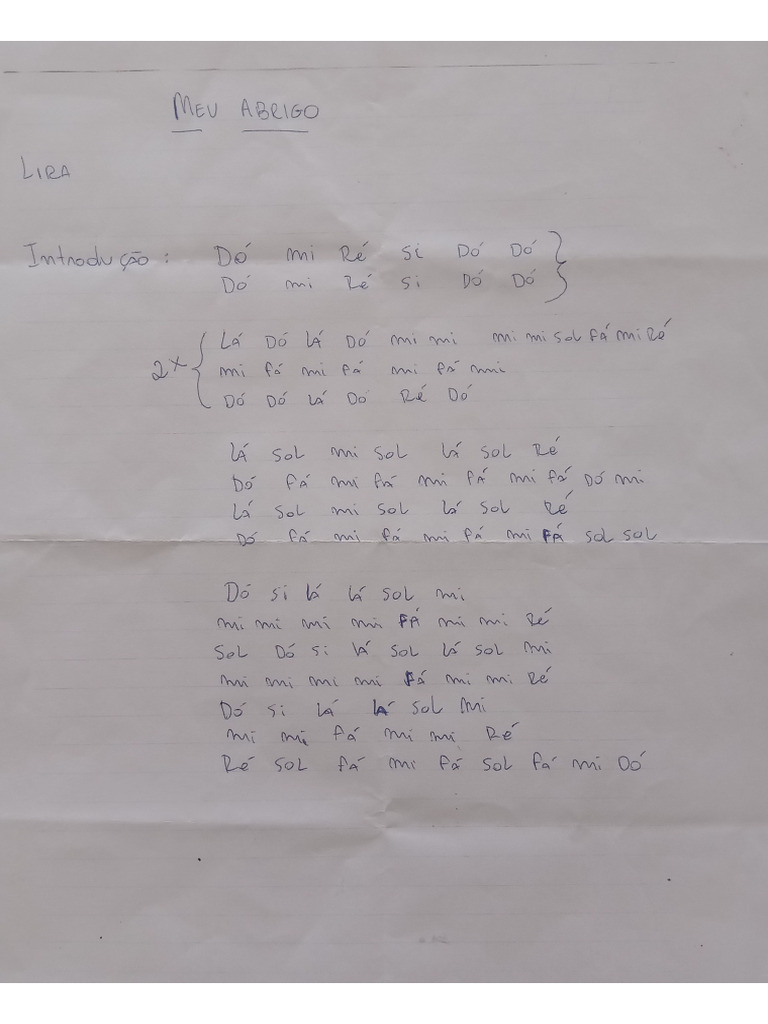 MEU ABRIGO
LIRA
Introdução: DÓ mi RÉ si DÓ DÓ
DÓ mi RÉ si DÓ DÓ
2x LÁ DÓ LÁ DÓ mi mi mi mi sol fá mi RÉ
mi fá mi fá mi fá mi
DÓ DÓ LÁ DÓ RÉ DÓ
LÁ SOL mi SOL LÁ SOL RÉ
DÓ fá mi fá mi fá mi fá DÓ mi
LÁ SOL mi SOL LÁ SOL RÉ
DÓ fá mi fá mi fá mi FÁ SOL SOL
DÓ si lá lá SOL mi
mi mi mi mi FÁ mi mi RÉ
SOL DÓ si lá SOL lá SOL mi
mi mi mi mi fá mi mi RÉ
DÓ si LÁ LÁ SOL mi
mi mi fá mi mi RÉ
RÉ SOL fá mi fá SOL fá mi DÓ